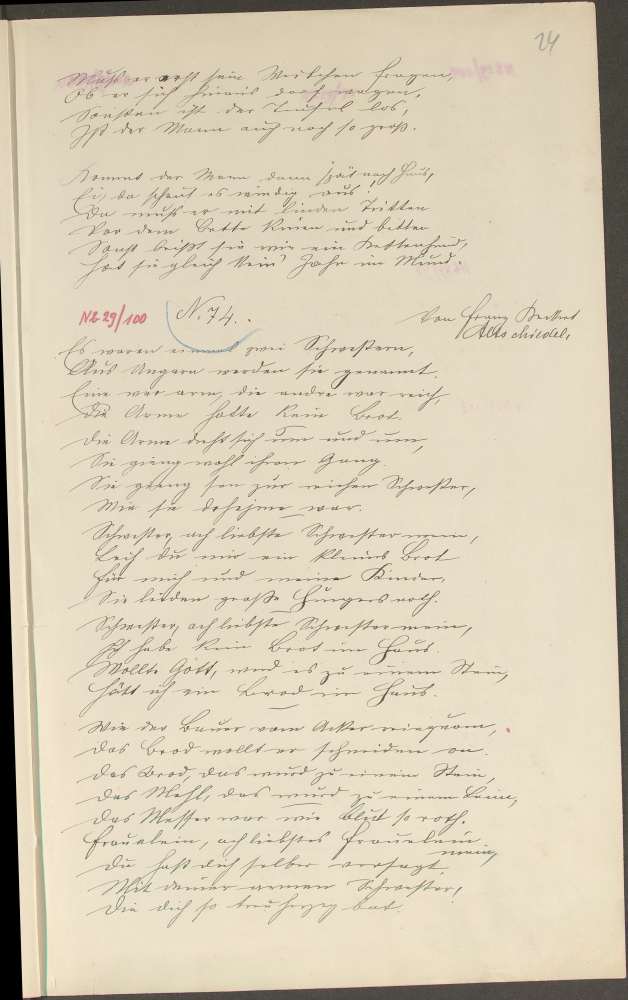 24
Muß er erst sein Weibchen fragen,
Ob er sich hinein darf wagen,
Sonsten ist der Teufel los,
Ist der Mann auch noch so groß.
Kommt der Mann dann spät nach Haus,
Ei, da schaut es windig aus!
Da muß er mit linden Tritten
Vor dem Bette knien und bitten
Sonst beißt sie wie ein Kettenhund,
Hat sie gleich kein' Zahn im Mund.
N2 29/100 N. 74. Von Franz Beckert
Altschiedel,
Es waren einmal zwei Schwestern,
Aus Ungarn werden sie genannt.
Eine war arm, die andre war reich,
Die Arme hatte kein Brot.
Die Arme dreht sich um und um,
Sie gieng wohl ihren Gang.
Sie gieng zur reichen Schwester,
Wie sie daheime war.
Schwester, ach liebste Schwester mein,
Leih du mir ein kleines Brot
Für mich und meine Kinder,
Sie leiden große Hungersnoth.
Schwester, ach liebste Schwester mein,
Ich habe kein Brot im Haus.
Wollte Gott, werd es zu einem Stein,
Hätt ich ein Brod im Haus.
Wie der Bauer vom Acker
Das Brod wollt er schneiden an.
Das Brod, das wurd zu einem Stein,
Das Mehl, das wurd zu einem
Das Messer war wie Blut so roth.
Frauelein, ach liebstes Frauelein
mein,
Du hast dich selber versagt
Mit deiner armen Schwester,
Die dich so treuherzig bat.